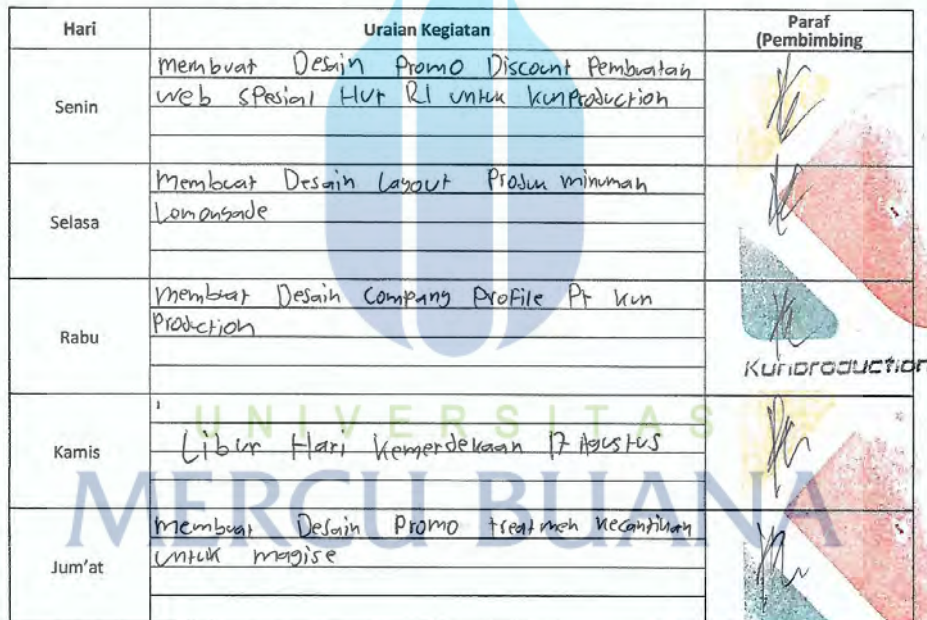 Hari Uraian Kegiatan Paraf
(Pembimbing
Senin
Membuat Desain Promo Discount Pembuatan
web Spesial HUT RI untuk kunproduction
Selasa
Membuat Desain Layout Produk minuman
Lomonsade
Rabu
Membuat Desain Company Profile Pt kun
Production
Kunproduction
Kamis
Libur Hari Kemerdekaan 17 Agustus
Jum'at
Membuat Desain Promo treatmen kecantikan
untuk magise
UNIVERSITAS
MERCU BUANA